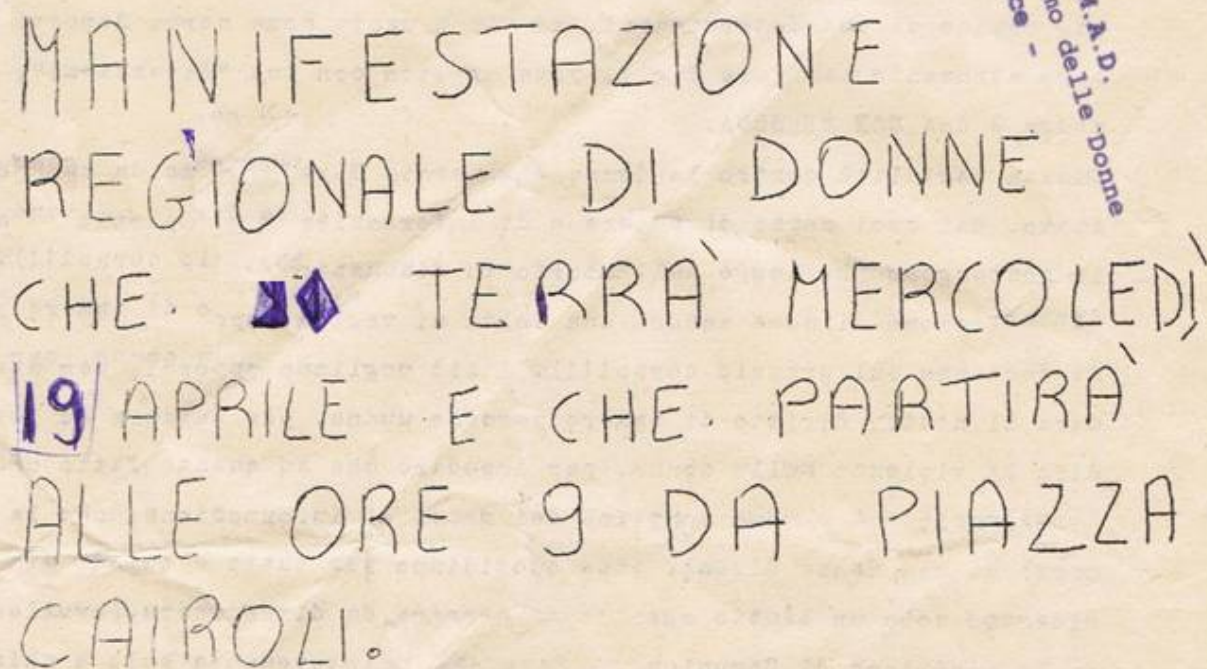 MANIFESTAZIONE
REGIONALE DI DONNE
CHE. TERRÀ MERCOLEDÌ
19 APRILE E CHE PARTIRÀ
ALLE ORE 9 DA PIAZZA
CAIROLI.
M.A.D.
delle Donne